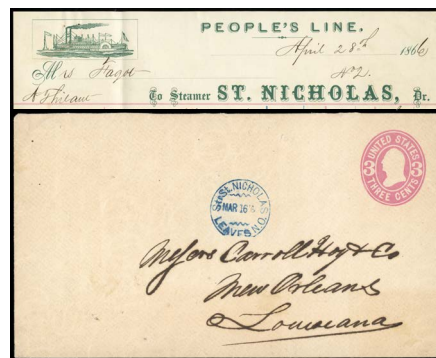 PEOPLE'S LINE,
April 28th 1866
Mrs Fagot
No 2.
To Steamer ST. NICHOLAS, Dr.
UNITED STATES
3 3
THREE CENTS
ST. NICHOLAS
MAR 16
LEAVES N.O.
Messrs Carroll Hoy & Co
New Orleans
Louisiana